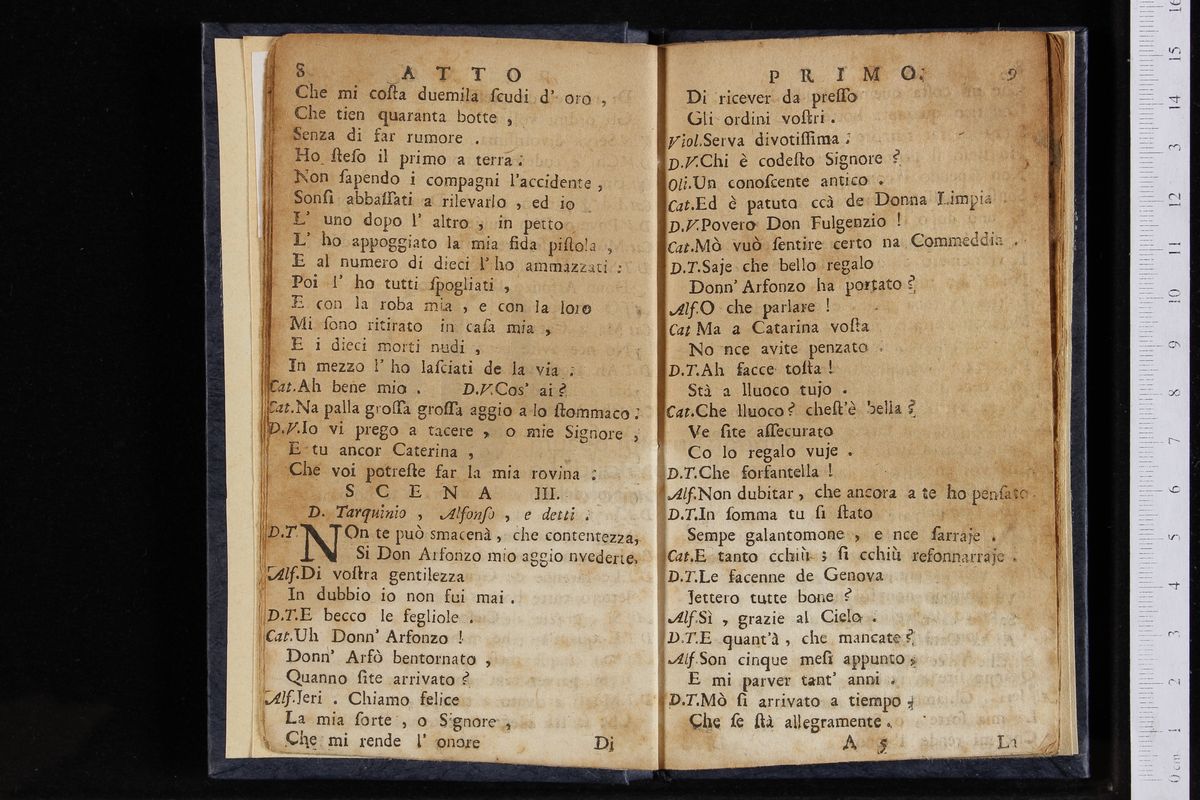 8 ATTO
Che mi coſta duemila ſcudi d' oro ,
Che tien quaranta botte ,
Senza di far rumore .
Ho ſteſo il primo a terra :
Non ſapendo i compagni l'accidente ,
Sonſi abbaſſati a rilevarlo , ed io
L' uno dopo l' altro , in petto
L' ho appoggiato la mia fida piſtola ,
E al numero di dieci l' ho ammazzati :
Poi l' ho tutti ſpogliati ,
E con la roba mia , e con la loro
Mi ſono ritirato in caſa mia ,
E i dieci morti nudi ,
In mezzo l' ho laſciati de la via .
Cat.Ah bene mio . D.V.Cos' ai ?
Cat.Na palla groſſa groſſa aggio a lo ſtommaco :
D.V.Io vi prego a tacere , o mie Signore ,
E tu ancor Caterina ,
Che voi potreſte far la mia rovina :
SCENA III.
D. Tarquinio , Alfonſo , e detti .
D.T.NOn te può smacenà , che contentezza,
Si Don Arfonzo mio aggio nvederte,
Alf.Di voſtra gentilezza
In dubbio io non fui mai .
D.T.E becco le fegliole .
Cat.Uh Donn' Arfonzo !
Donn' Arfò bentornato ,
Quanno ſite arrivato ?
Alf.Jeri . Chiamo felice
La mia ſorte , o Signore ,
Che mi rende l' onore
Di
PRIMO. 9
Di ricever da preſſo
Gli ordini voſtri .
Viol.Serva divotiſſima :
D.V.Chi è codeſto Signore ?
Oli.Un conoſcente antico .
Cat.Ed è patuto ccà de Donna Limpia
D.V.Povero Don Fulgenzio !
Cat.Mò vuò ſentire certo na Commeddia .
D.T.Saje che bello regalo
Donn' Arfonzo ha portato ?
Alf.O che parlare !
Cat Ma a Catarina voſta
No nce avite penzato .
D.T.Ah facce toſta !
Stà a lluoco tujo .
Cat.Che lluoco ? cheſt'è bella ?
Ve ſite aſſecurato
Co lo regalo vuje .
D.T.Che forfantella !
Alf.Non dubitar , che ancora a te ho penſato.
D.T.In ſomma tu ſi ſtato
Sempe galantomone , e nce ſarraje .
Cat.E tanto cchiù ; ſi cchiù refonnarraje .
D.T.Le facenne de Genova
Jettero tutte bone ?
Alf.Sì , grazie al Cielo .
D.T.E quant'à , che mancate ?
Alf.Son cinque meſi appunto ,
E mi parver tant' anni .
D.T.Mò ſi arrivato a tiempo ,
Che ſe ſtà allegramente .
A 5